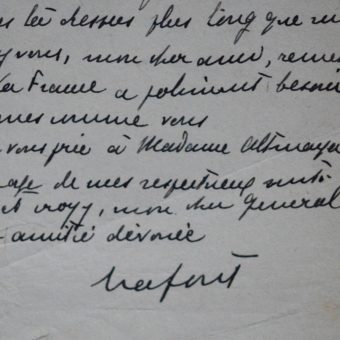 là dessus plus long que
vous, mon cher ami,
La France a joliment besoin
comme vous
vous prie à Madame Altmayer
de mes respectueux
croyez, mon cher Général
amitié dévouée